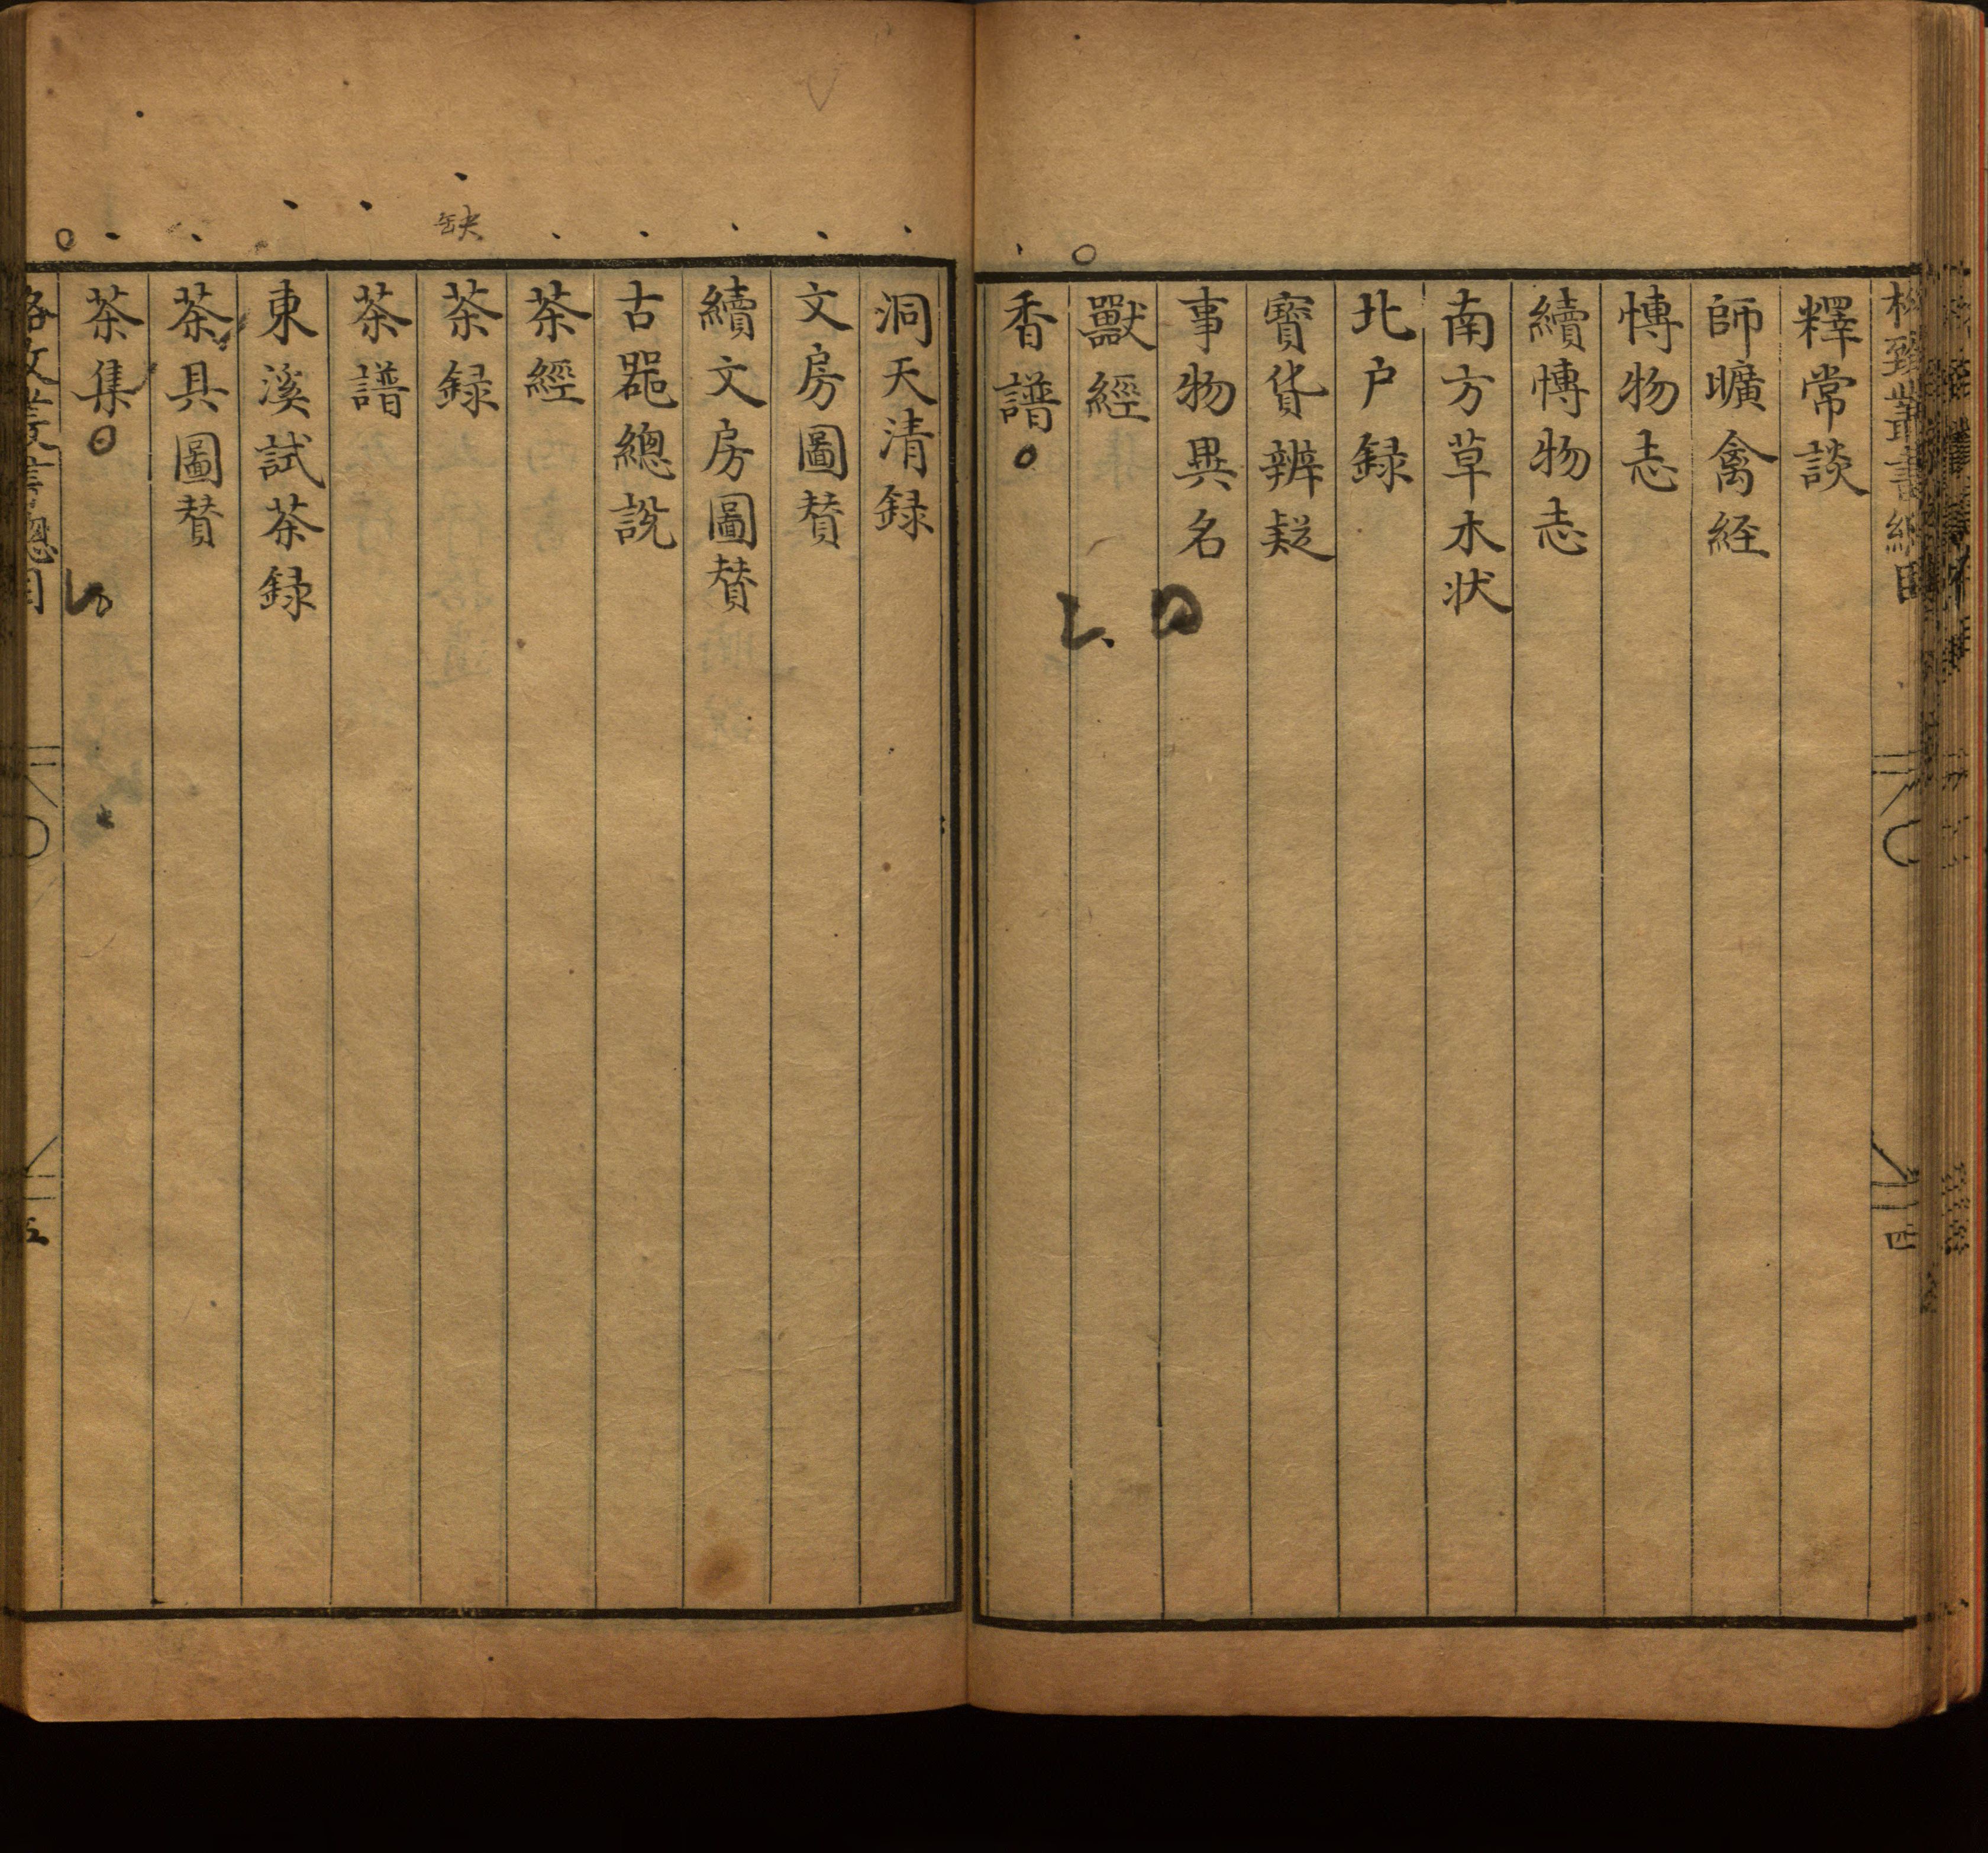 格致叢書總目
四
釋常談
師曠禽経
博物志
續博物志
南方草木状
北户録
寳貨辨疑
事物異名
獸經
香譜
洞天清録
文房圖賛
續文房圖賛
古噐總說
缺
茶經
茶録
茶譜
東溪試茶録
茶具圖賛
茶集
格致叢書總目
五